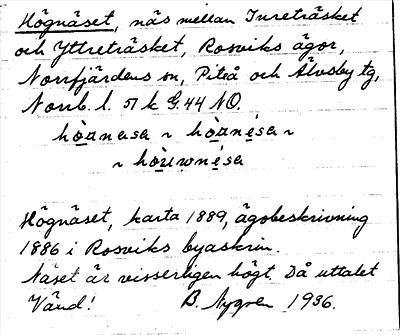 Högnäset, näs mellan Inreträsket
och Yttreträsket, Rosviks ägor,
Norrfjärdens sn, Piteå och Älvsby tg,
Norrb. l. 57 k G. 44 NO.
Högnäset, karta 1889, ägobeskrivning
1886 i Rosviks byaskrin.
Näset är visserligen högt. Då uttalet
Vänd! B. Nygren 1936.